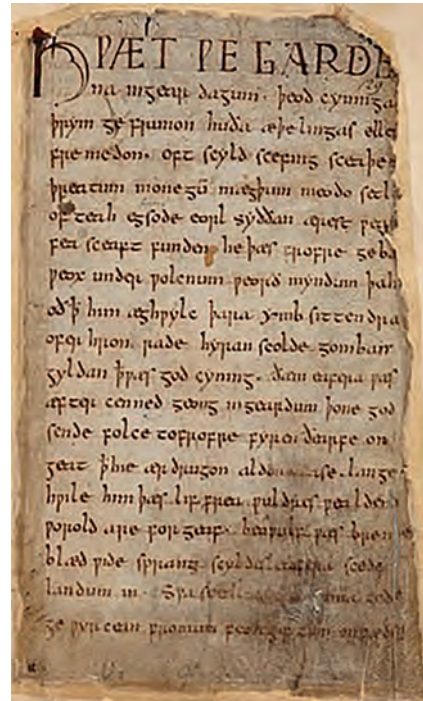 HǷÆT ǷE GARDE
na ingear dagum. þeod cyninga
þrym ge frunon huða æþelingas elle
fre medon. oft scyld scefing sceaþe
þreatum monegū mægþum meodo setla
of teah egsode eorl syððan ærest ƿea
fea sceaft funden he þæs frofre geba
ƿeox under ƿolcnum ƿeorð myndum þah
oð ꝥ him æghƿylc þara ymb sittendra
ofer hron rade hyran scolde gomban
gyldan ꝥ ƿæs god cyning. ðæm eafera ƿæs
æfter cenned geong ingeardum þone god
sende folce tofrofre fyren ðearfe on
geat ꝥ hie ær drugon aldor ase. lange
hƿile him þæs lif frea ƿuldres ƿealdend
ƿorold are forgeaf. beoƿulf ƿæs breme
blæd ƿide sprang scyldes eafera scede
landum in. Sƿa sceal guma gode
ge ƿyrcean fromum feoh giftum on fæder